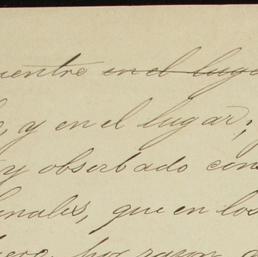 uentre ~~en el luga~~
, y en el lugar;
y obserbado cons
nales, que en los
por razon